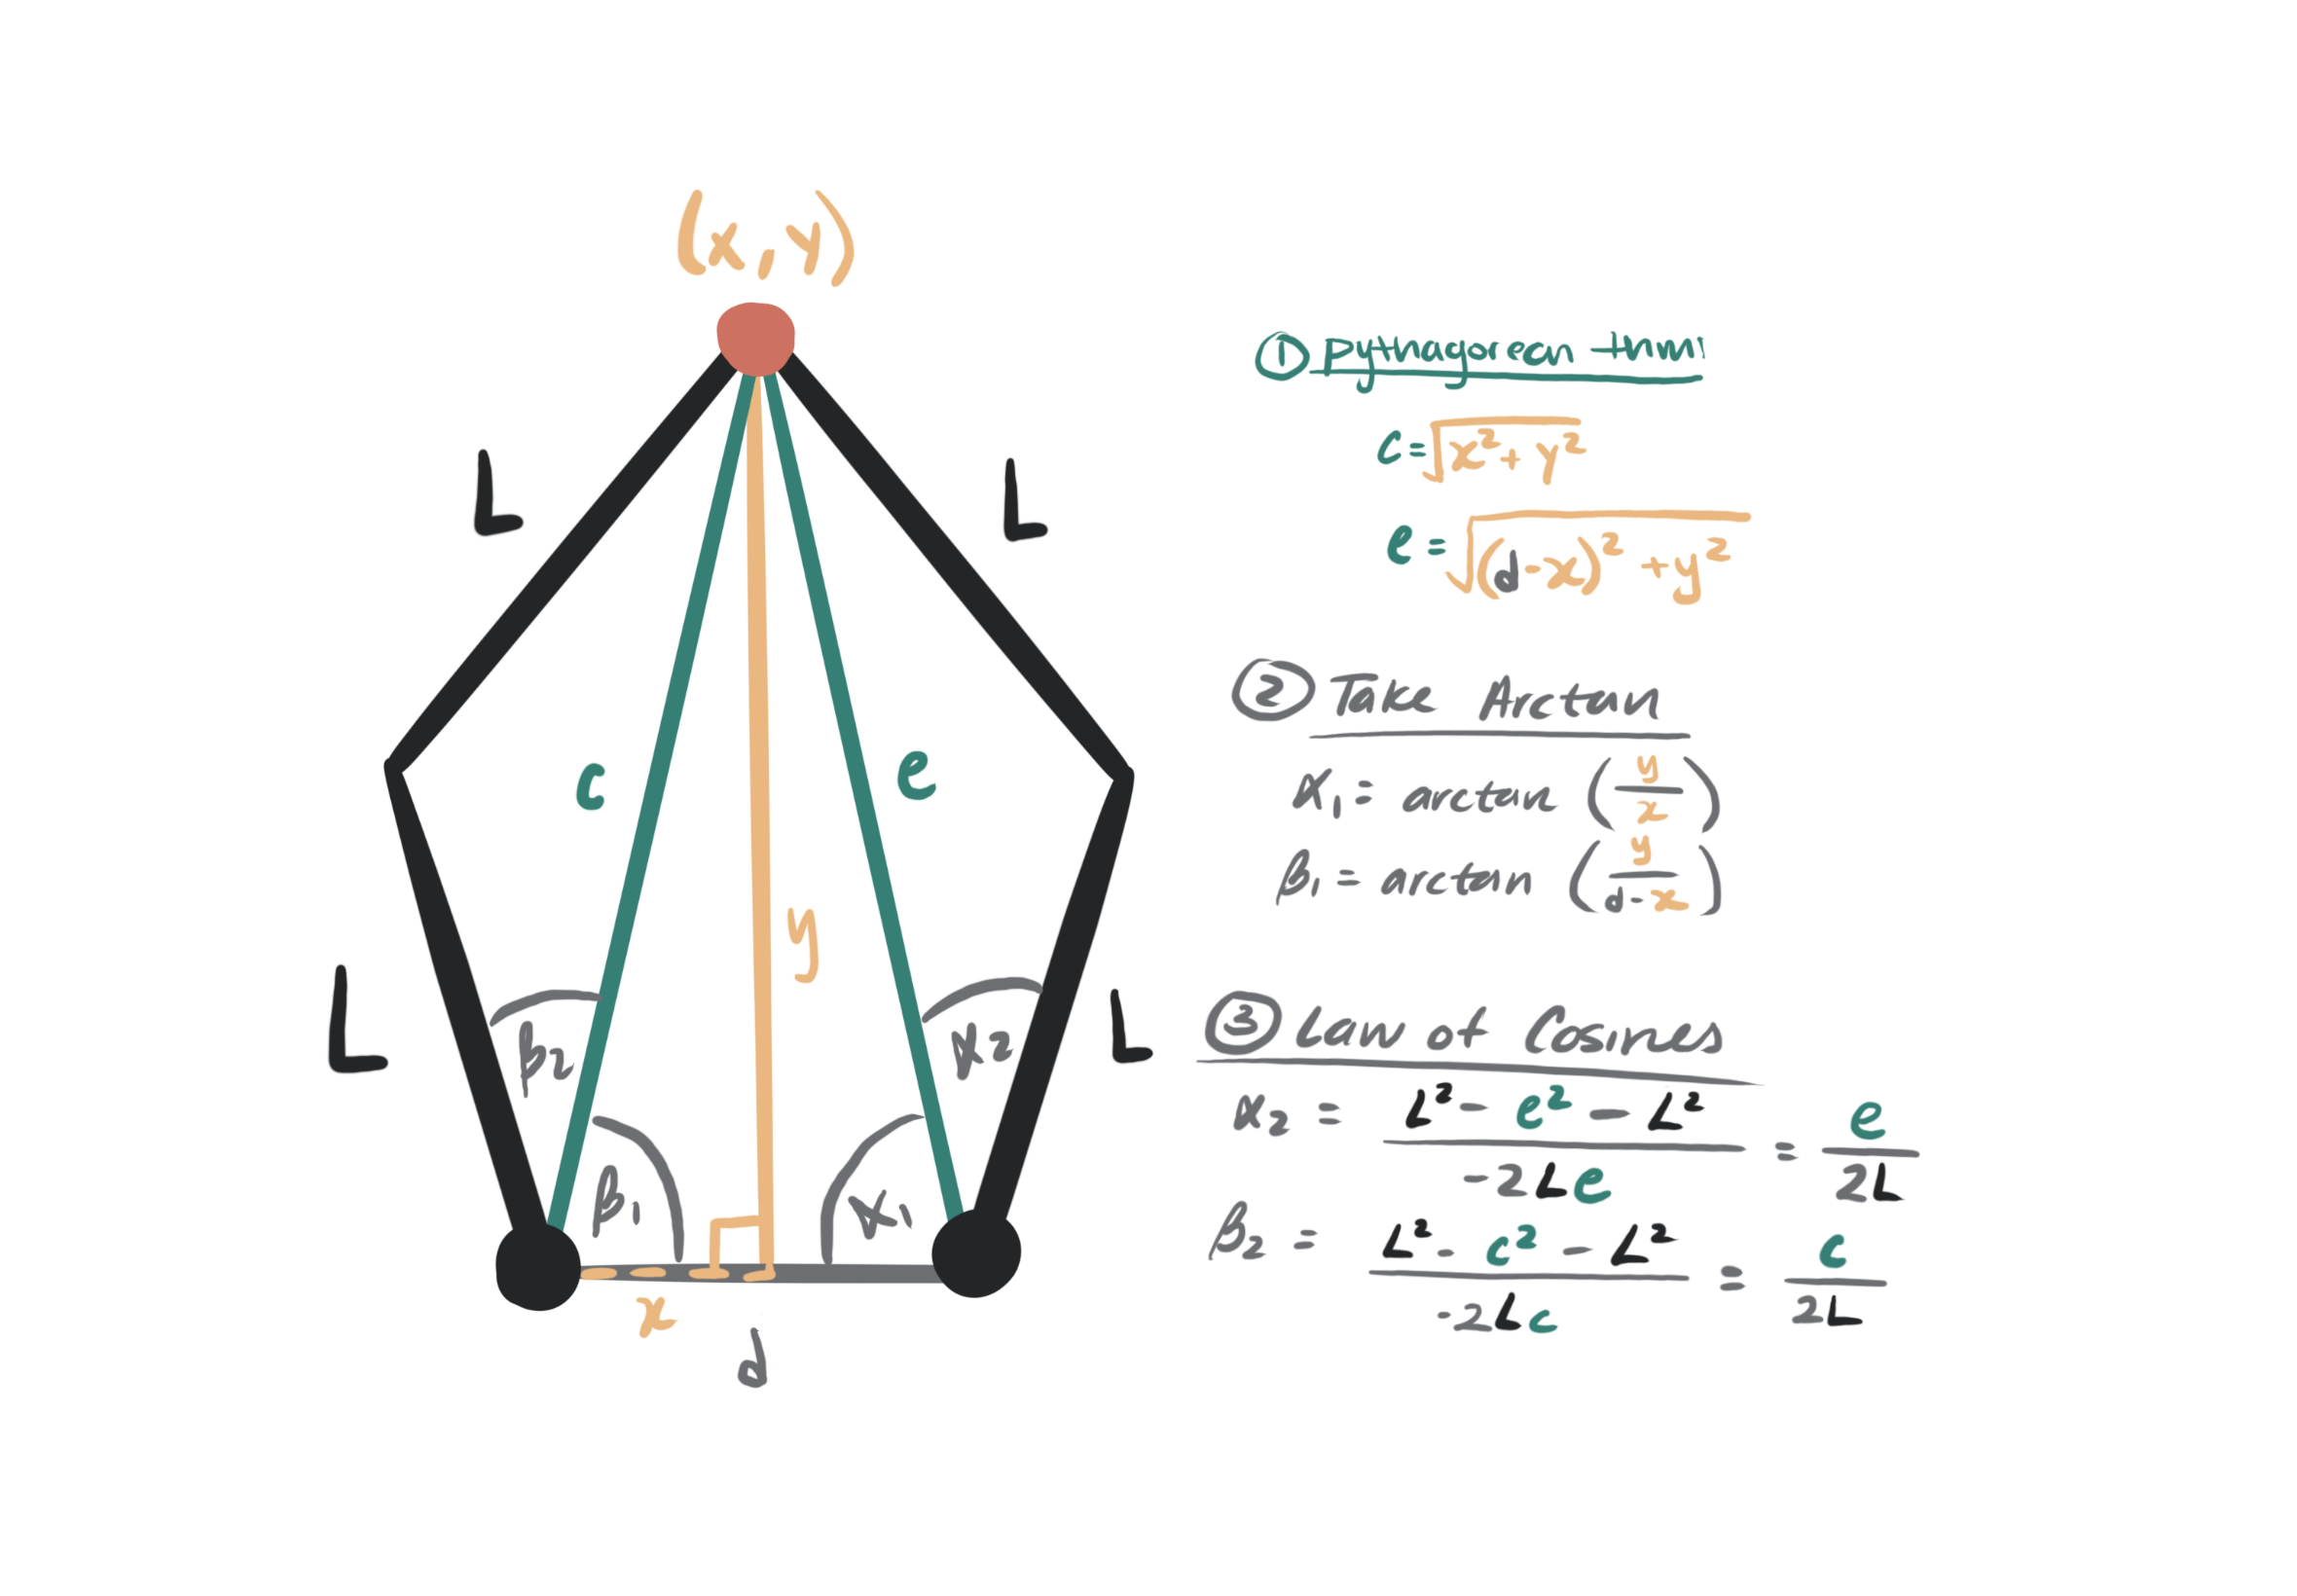 (x, y)
L
L
c
e
y
L
L
β₂
α₂
β₁
α₁
x
d
① pythagorean thm:
c = √(x² + y²)
e = √((d-x)² + y²)
② Take Arctan
α₁ = arctan (y/x)
β₁ = arctan (y/(d-x))
③ Law of Cosines
α₂ = (L² - e² - L²)/(-2Le) = e/2L
β₂ = (L² - c² - L²)/(-2Lc) = c/2L